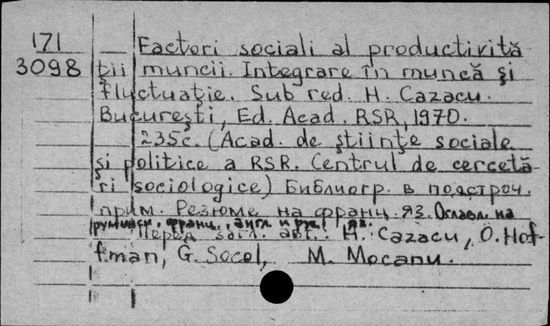 171 Factori sociali al productivită
3098 ţii muncii. Integrare în muncă şi
fluctuaţie. Sub red. H. Cazacu.
Bucureşti, Ed. Acad. RSR, 1970.
235с. (Acad. de ştiinţe sociale
şi politice a RSR. Centrul de cercetă
ri sociologice) Библиогр. в подстроч.
прим. Резюме на франц. яз. Оглавл. на
румынск., франц., англ. и рус. яз.
Перед загл. авт.: H. Cazacu, O. Hof-
fman, G. Socol, M. Mocanu.